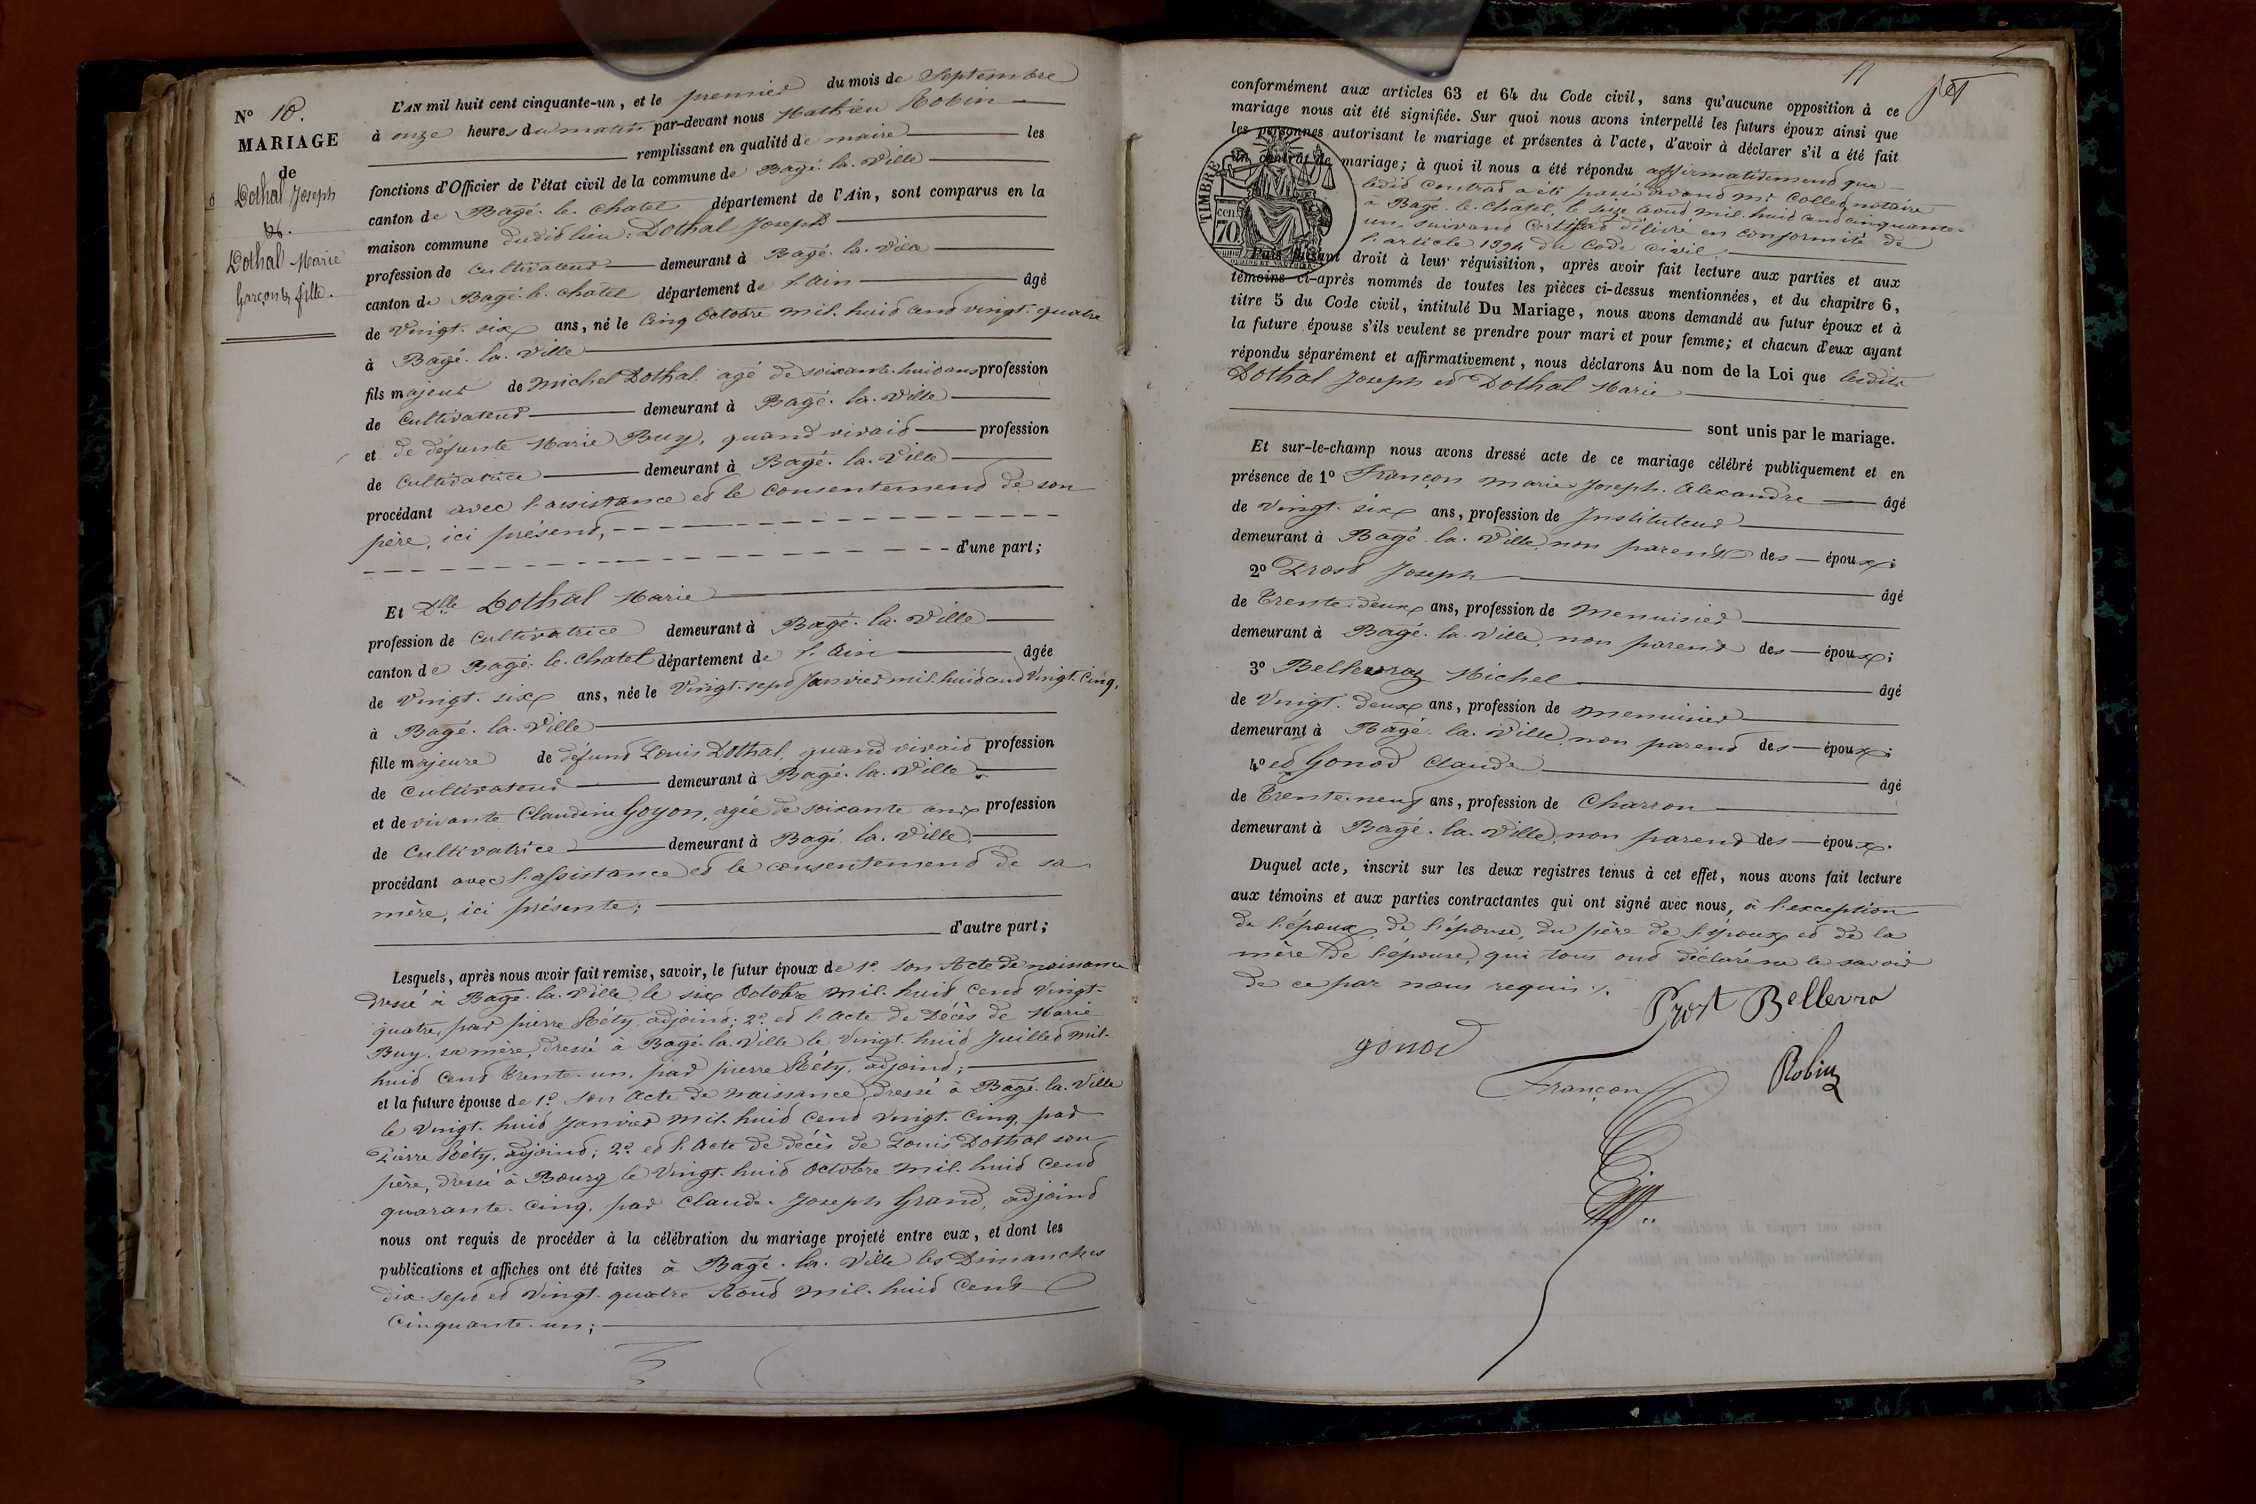 N° 18.
MARIAGE
de
Dothal Joseph
&.
Dothal Marie
Garçon & fille.
L'AN mil huit cent cinquante-un, et le premier du mois de Septembre
à onze heures du matin par-devant nous Mathieu Robin
remplissant en qualité de maire les
fonctions d'Officier de l'état civil de la commune de Bagé-la-Ville
canton de Bagé-le-Chatel département de l'Ain, sont comparus en la
maison commune dudit lieu: Dothal Joseph
profession de Cultivateur demeurant à Bagé-la-Ville
canton de Bagé-le-Châtel département de l'Ain âgé
de Vingt-six ans, né le Cinq Octobre mil-huit cent vingt-quatre
à Bagé-la-Ville
fils majeur de Michel Dothal agé de soixante-huit ans profession
de Cultivateur demeurant à Bagé-la-Ville
et de défunte Marie Buy, quand vivait profession
de Cultivatrice demeurant à Bagé-la-Ville
procédant avec l'assistance et le consentement de son
père, ici présent,
d'une part;
Et Dlle Dothal Marie
profession de Cultivatrice demeurant à Bagé-la-Ville
canton de Bagé-le-Chatel département de l'Ain âgée
de Vingt-six ans, née le Vingt-sept Janvier mil-huit cent Vingt-Cinq,
à Bagé-la-Ville
fille majeure de défunt Louis Dothal, quand vivait profession
de Cultivateur demeurant à Bagé-la-Ville
et de vivante Claudine Goyon, agée de soixante ans profession
de Cultivatrice demeurant à Bagé-la-Ville
procédant avec l'assistance et le consentement de sa
mère, ici présente;
d'autre part;
Lesquels, après nous avoir fait remise, savoir, le futur époux de 1° son Acte de naissance
dressé à Bagé-la-Ville le six Octobre mil-huit cent Vingt-
quatre, par pierre Réty, adjoint; 2° et l'acte de Décès de Marie
Buy sa mère, dressé à Bagé-la-Ville le Vingt-huit Juillet mil-
huit cent trente-un, par pierre Réty, adjoint;
et la future épouse de 1° son Acte de naissance, dressé à Bagé-la-Ville
le Vingt-huit Janvier mil-huit cent Vingt-Cinq, par
Pierre Réty, adjoint; 2° et l'Acte de décès de Louis Dothal son
père, dressé à Bourg le Vingt-huit Octobre mil-huit cent
quarante-Cinq, par Claude-Joseph Grand, adjoint
nous ont requis de procéder à la célébration du mariage projeté entre eux, et dont les
publications et affiches ont été faites à Bagé-la-Ville les Dimanches
dix-sept et Vingt-quatre Août mil-huit cent
Cinquante-un;
conformément aux articles 63 et 64 du Code civil, sans qu'aucune opposition à ce
mariage nous ait été signifiée. Sur quoi nous avons interpellé les futurs époux ainsi que
les personnes autorisant le mariage et présentes à l'acte, d'avoir à déclarer s'il a été fait
un contrat de mariage; à quoi il nous a été répondu affirmativement que
ledit Contrat a été passé devant Me Collet notaire
à Bagé-le-Chatel, le seize Août mil-huit cent cinquante-
un, suivant Certificat délivré en conformité de
l'article 1394 du Code civil.
Puis faisant droit à leur réquisition, après avoir fait lecture aux parties et aux
témoins ci-après nommés de toutes les pièces ci-dessus mentionnées, et du chapitre 6,
titre 5 du Code civil, intitulé Du Mariage, nous avons demandé au futur époux et à
la future épouse s'ils veulent se prendre pour mari et pour femme; et chacun d'eux ayant
répondu séparément et affirmativement, nous déclarons Au nom de la Loi que lesdits
Dothal Joseph et Dothal Marie
sont unis par le mariage.
Et sur-le-champ nous avons dressé acte de ce mariage célébré publiquement et en
présence de 1° Françon Marie Joseph Alexandre âgé
de Vingt-six ans, profession de Instituteur
demeurant à Bagé-la-Ville, non parent des époux;
2° Prost Joseph âgé
de Trente-deux ans, profession de Menuisier
demeurant à Bagé-la-Ville, non parent des époux;
3° Bellevray Michel âgé
de Vingt-deux ans, profession de Menuisier
demeurant à Bagé-la-Ville, non parent des époux;
4° et Gonod Claude âgé
de Trente-neuf ans, profession de Charron
demeurant à Bagé-la-Ville, non parent des époux.
Duquel acte, inscrit sur les deux registres tenus à cet effet, nous avons fait lecture
aux témoins et aux parties contractantes qui ont signé avec nous, à l'exception
de l'époux, de l'épouse, du père de l'époux et de la
mère de l'épouse, qui tous ont déclaré ne le savoir
de ce par nous requis.
Prost Bellevra
gonod
Françon
Robin
TIMBRE
70